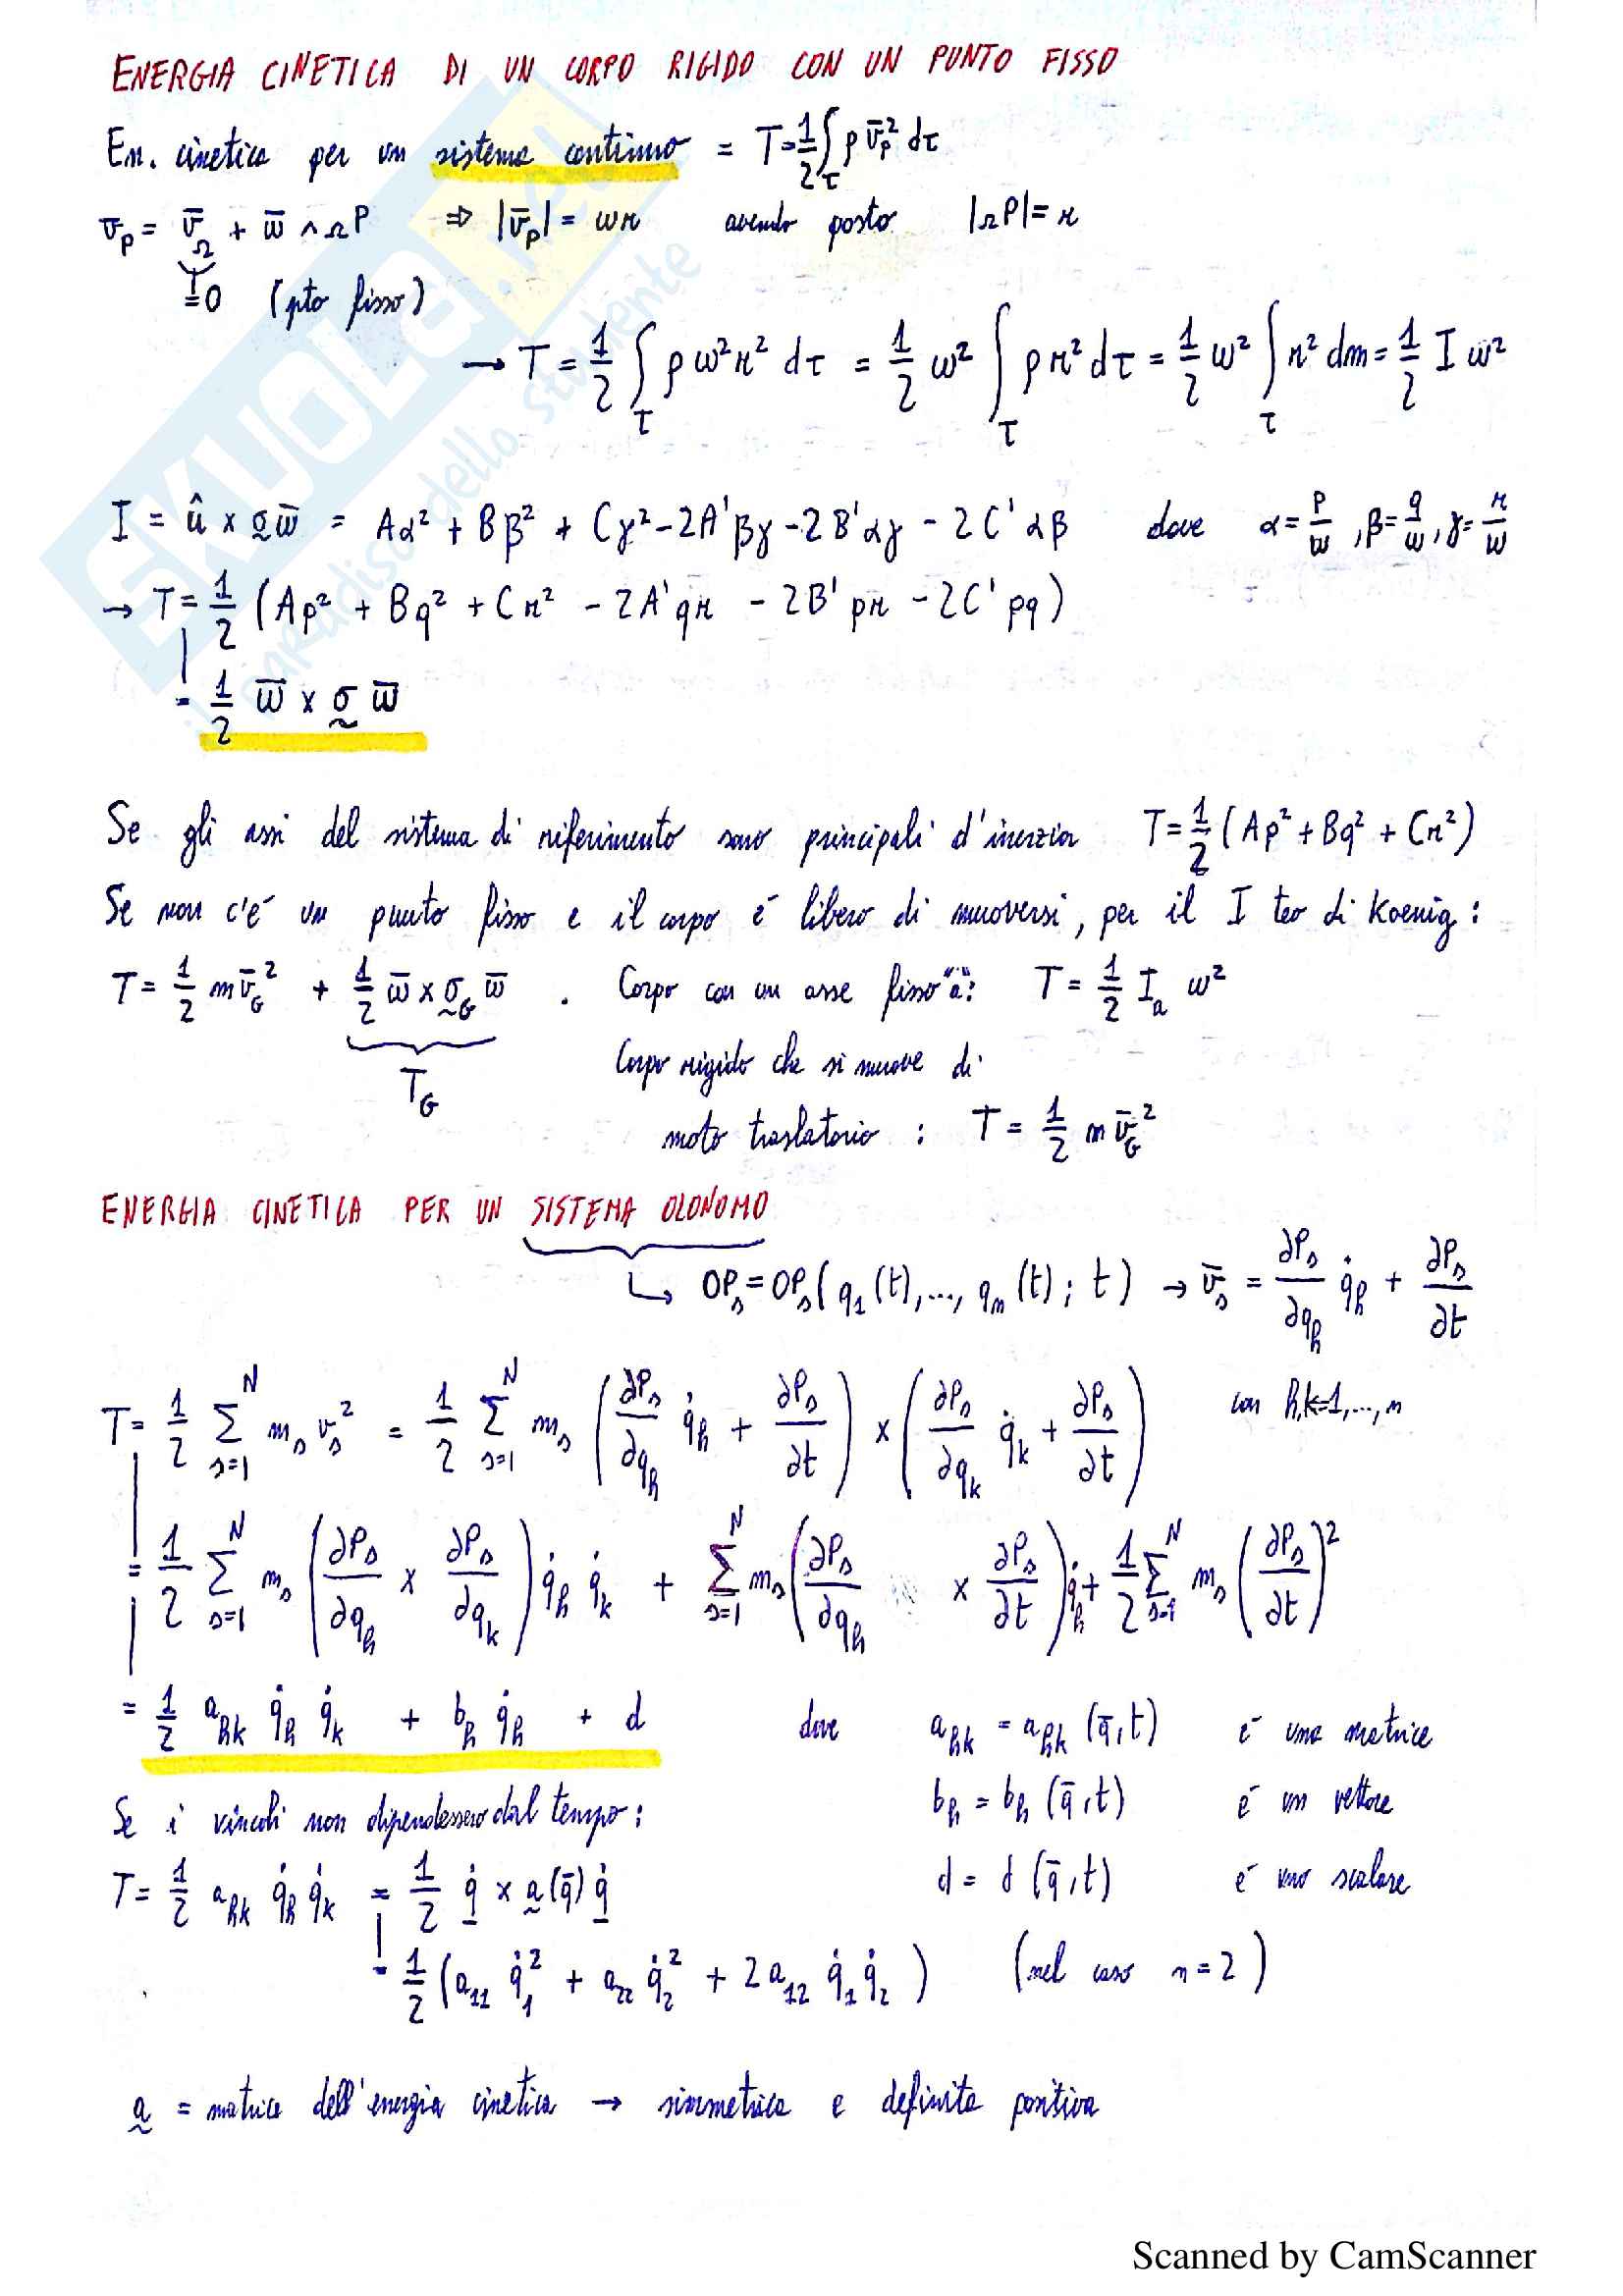 ENERGIA CINETICA DI UN CORPO RIGIDO CON UN PUNTO FISSO
En. cinetica per un sistema continuo = T = 1/2 ∫_τ ρ v̄_P² dτ
v̄_P = v̄_Ω + ω̄ ∧ ΩP ⇒ |v̄_P| = ωr avendo posto |ΩP| = r
=0 (pto fisso)
→ T = 1/2 ∫_τ ρ ω² r² dτ = 1/2 ω² ∫_τ ρ r² dτ = 1/2 ω² ∫_τ r² dm = 1/2 I ω²
I = û × σ ω̄ = Aα² + Bβ² + Cγ² - 2A'βγ - 2B'αγ - 2C'αβ dove α = p/ω, β = q/ω, γ = r/ω
→ T = 1/2 (Ap² + Bq² + Cr² - 2A'qr - 2B'pr - 2C'pq)
= 1/2 ω̄ × σ ω̄
Se gli assi del sistema di riferimento sono principali d'inerzia T = 1/2 (Ap² + Bq² + Cr²)
Se non c'è un punto fisso e il corpo è libero di muoversi, per il I teo di Koenig:
T = 1/2 m v̄_G² + 1/2 ω̄ × σ_G ω̄ . Corpo con un asse fisso "a": T = 1/2 I_a ω²
T_G
Corpo rigido che si muove di
moto traslatorio : T = 1/2 m v̄_G²
ENERGIA CINETICA PER UN SISTEMA OLONOMO
↳ OP_s = OP_s (q_1(t), ..., q_n(t); t) → v̄_s = ∂P_s/∂q_h q̇_h + ∂P_s/∂t
T = 1/2 Σ_{s=1}^N m_s v_s² = 1/2 Σ_{s=1}^N m_s (∂P_s/∂q_h q̇_h + ∂P_s/∂t) × (∂P_s/∂q_k q̇_k + ∂P_s/∂t) con h,k=1,...,n
= 1/2 Σ_{s=1}^N m_s (∂P_s/∂q_h × ∂P_s/∂q_k) q̇_h q̇_k + Σ_{s=1}^N m_s (∂P_s/∂q_h × ∂P_s/∂t) q̇_h + 1/2 Σ_{s=1}^N m_s (∂P_s/∂t)²
= 1/2 a_hk q̇_h q̇_k + b_h q̇_h + d dove a_hk = a_hk (q̄,t) è una matrice
b_h = b_h (q̄,t) è un vettore
Se i vincoli non dipendessero dal tempo:
d = d (q̄,t) è uno scalare
T = 1/2 a_hk q̇_h q̇_k = 1/2 q̇ × a(q̄) q̇
= 1/2 (a_11 q̇_1² + a_22 q̇_2² + 2 a_12 q̇_1 q̇_2) (nel caso n=2)
a = matrice dell'energia cinetica → simmetrica e definita positiva
SKUOLA.net
il paradiso dello studente
Scanned by CamScanner